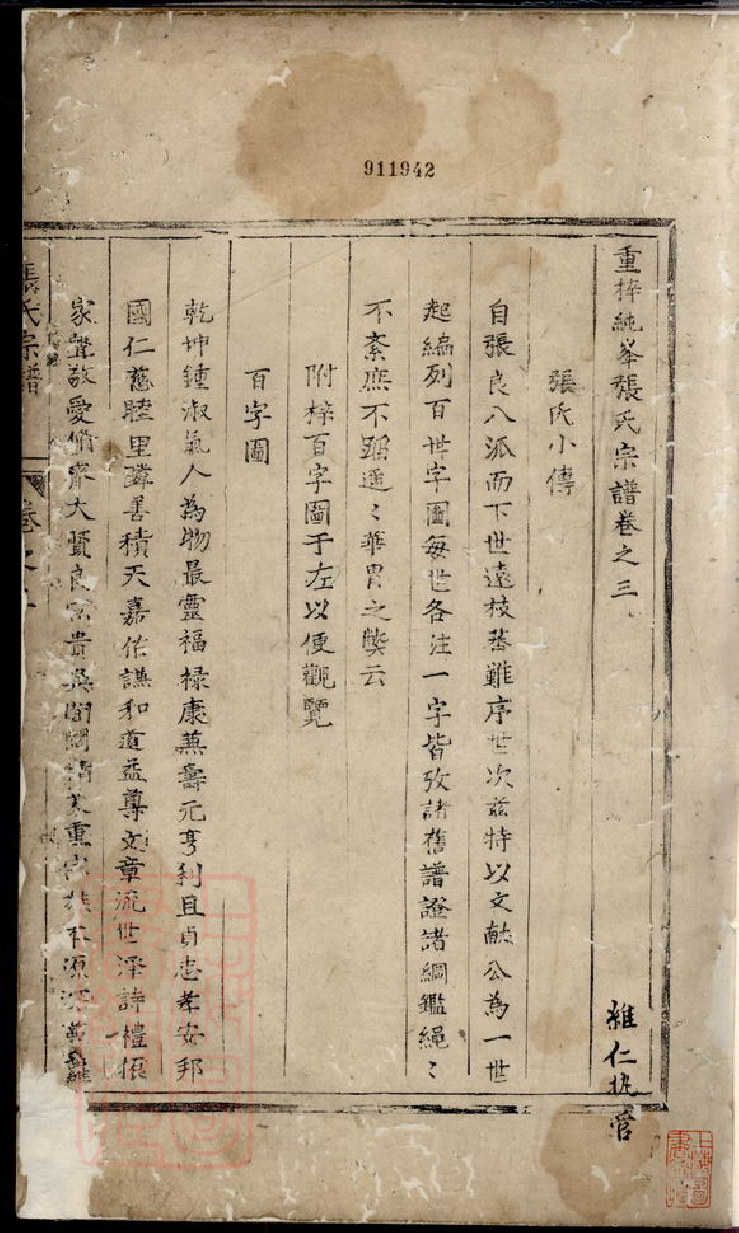 911942
重梓純峯張氏宗譜卷之三
雅仁执管
張氏小傳
自張良八派而下世遠枝蕃難序世次兹特以文献公為一世
起編列百世字圖每世各注一字皆攷諸舊譜證諸綱鑑繩〻
不紊庶不蹈遥〻華胄之獘云
附梓百字圖于左以便觀覽
百字圖
乾坤鍾淑氣人為物最靈福禄康兼壽元亨利且貞忠孝安邦
國仁慈睦里隣善積天嘉佑謙和道益尊文章流世澤詩禮振
家聲敬愛脩齊大賢良貴重本源
張氏宗譜
卷之三
上海圖書館藏